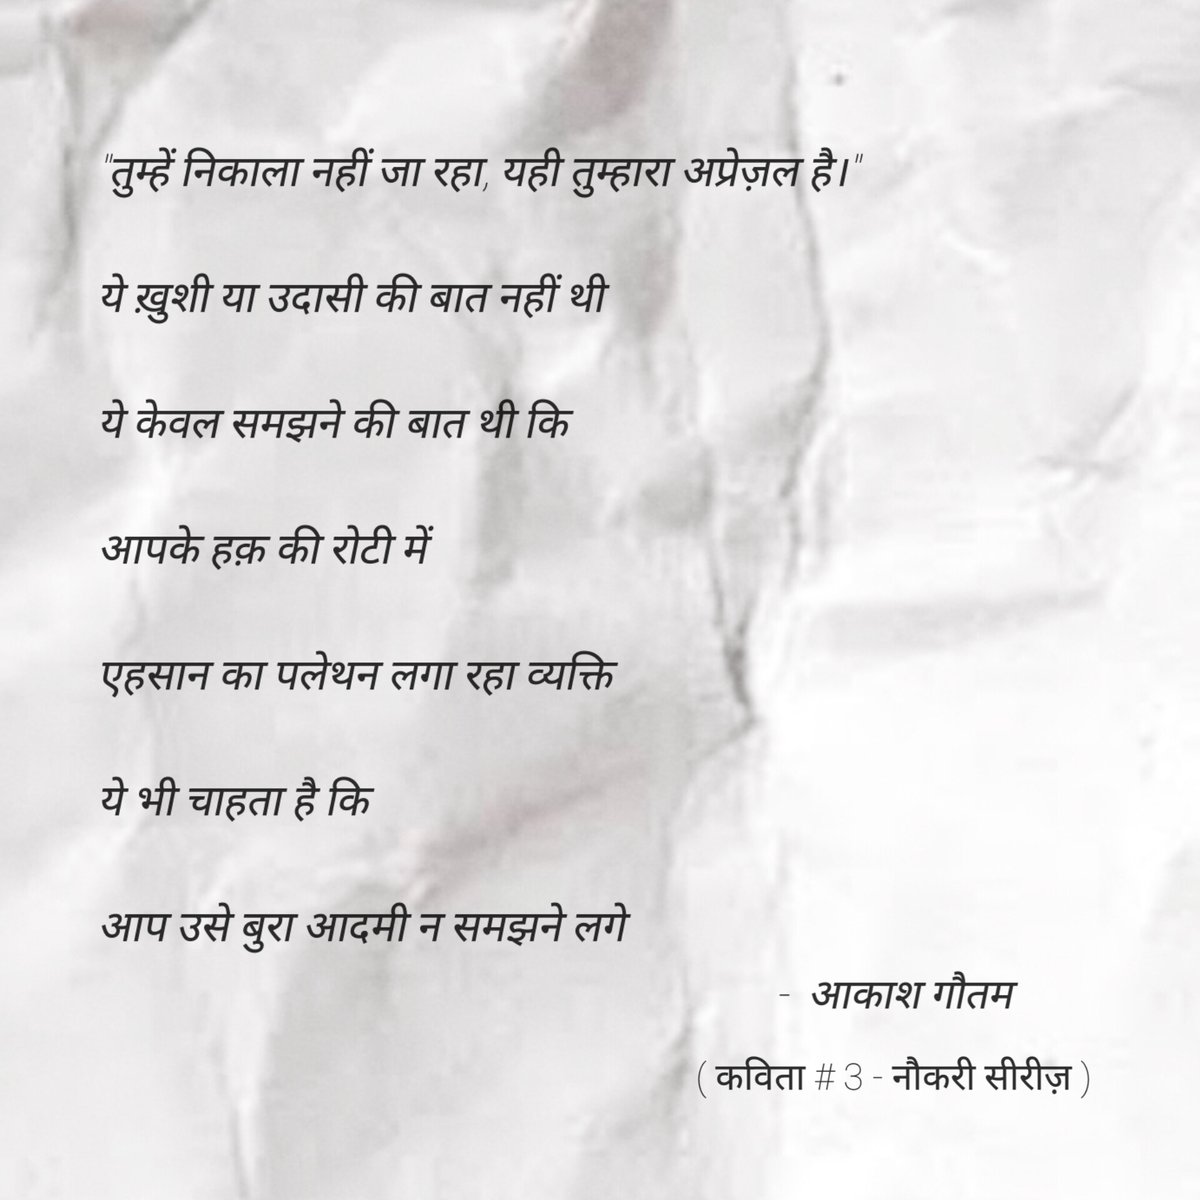 "तुम्हें निकाला नहीं जा रहा, यही तुम्हारा अप्रेज़ल है।"
ये ख़ुशी या उदासी की बात नहीं थी
ये केवल समझने की बात थी कि
आपके हक़ की रोटी में
एहसान का पलेथन लगा रहा व्यक्ति
ये भी चाहता है कि
आप उसे बुरा आदमी न समझने लगे
- आकाश गौतम
( कविता # 3 - नौकरी सीरीज़ )